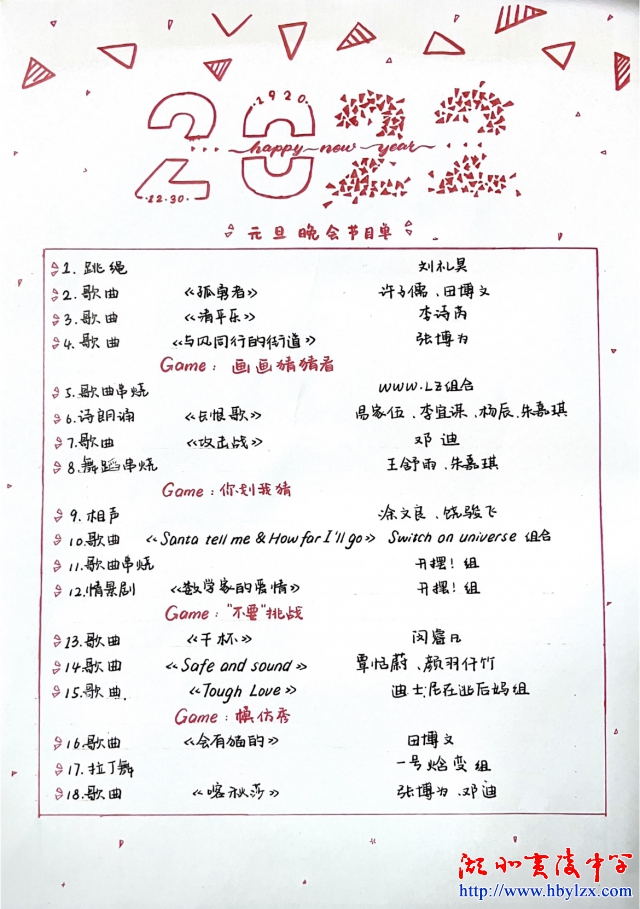 1920
2022
happy new year
12.30
元旦晚会节目单
1. 跳绳 刘礼昊
2. 歌曲 《孤勇者》 许予儒、田博文
3. 歌曲 《清平乐》 李诗芮
4. 歌曲 《与风同行的街道》 张博为
Game：画画猜猜看
5. 歌曲串烧 WWW.LZ组合
6. 诗朗诵 《长恨歌》 易家伍、李宜谋、杨辰、朱嘉琪
7. 歌曲 《攻击战》 邓迪
8. 舞蹈串烧 王舒雨、朱嘉琪
Game：你划我猜
9. 相声 涂文良、饶骏飞
10. 歌曲 《Santa tell me & How far I'll go》 Switch on universe 组合
11. 歌曲串烧 开摆！组
12. 情景剧 《数学家的爱情》 开摆！组
Game："不要"挑战
13. 歌曲 《干杯》 闵睿凡
14. 歌曲 《Safe and sound》 覃恬蔚、颜羽仟竹
15. 歌曲 《Tough Love》 迪士尼在逃后妈组
Game：模仿秀
16. 歌曲 《会有猫的》 田博文
17. 拉丁舞 一号焓变组
18. 歌曲 《喀秋莎》 张博为、邓迪
湖北夷陵中学
http://www.hbylzx.com